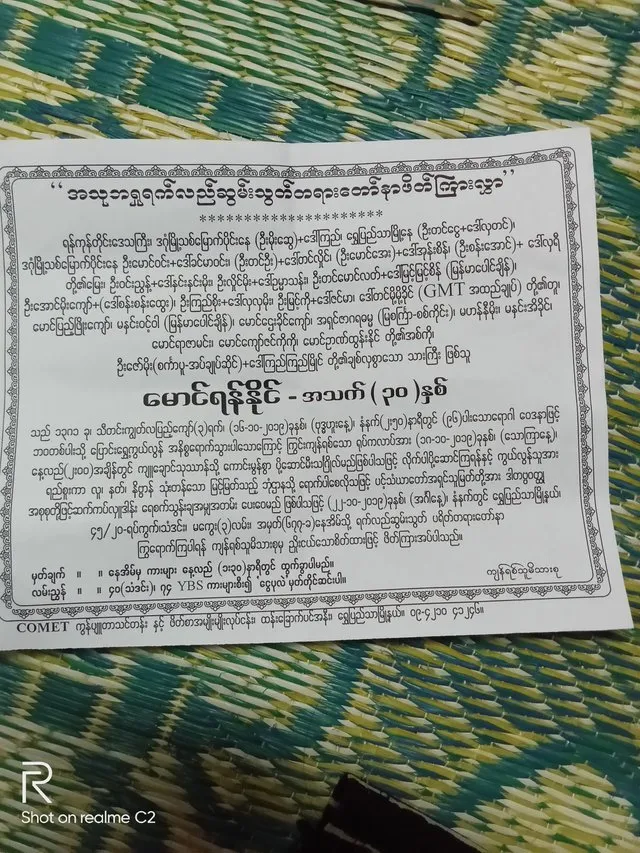 “ အသုဘရှုရက်လည်ဆွမ်းသွတ်တရားတော်နာဖိတ်ကြားလွှာ ”
********************
ရန်ကုန်တိုင်းဒေသကြီး၊ ဒဂုံမြို့သစ်မြောက်ပိုင်းနေ (ဦးမိုးဆွေ)+ဒေါ်ကြည်၊ ရွှေပြည်သာမြို့နေ (ဦးတင်ငွေ+ဒေါ်လှတင်)၊
ဒဂုံမြို့သစ်မြောက်ပိုင်းနေ ဦးမောင်ဝင်း+ဒေါ်ခင်မာဝင်း၊ (ဦးတင်ဦး)+ဒေါ်တင်လှိုင်၊ (ဦးမောင်အေး)+ဒေါ်အုန်းစိန်၊ (ဦးစန်းအောင်)+ ဒေါ်လှရီ
တို့၏မြေး၊ ဦးဝင်းညွန့်+ဒေါ်နှင်းနှင်းမိုး၊ ဦးလှိုင်မိုး+ဒေါ်ဥမ္မာသန်း၊ ဦးတင်မောင်လတ်+ဒေါ်မြင့်မြင့်စိန် (မြန်မာပေါင်ချိန်)၊
ဦးအောင်မိုးကျော်+(ဒေါ်စန်းစန်းထွေး)၊ ဦးကြည်စိုး+ဒေါ်လှလှမိုး၊ ဦးမြင့်ကို+ဒေါ်ဇင်မာ၊ ဒေါ်တင်မို့မို့ခိုင် (GMT အထည်ချုပ်) တို့၏တူ၊
မောင်ပြည့်ဖြိုးကျော်၊ မနှင်းဝင့်ဝါ (မြန်မာပေါင်ချိန်)၊ မောင်ငွေခိုင်ကျော်၊ အရှင်ဇာဂရဓမ္မ (မြစကြာ်-စစ်ကိုင်း)၊ မဟန်နီမိုး၊ မနှင်းအိခိုင်၊
မောင်ရာဇာမင်း၊ မောင်ကျော်ဇင်ကိုကို၊ မောင်ဉာဏ်ထွန်းနိုင် တို့၏အစ်ကို၊
ဦးဇော်မိုး(စင်္ကာပူ-အပ်ချုပ်ဆိုင်)+ဒေါ်ကြည်ကြည်မြိုင် တို့၏ချစ်လှစွာသော သားကြီး ဖြစ်သူ
မောင်ရန်နိုင် - အသက် ( ၃၀ )နှစ်
သည် ၁၃၈၁ ခု၊ သီတင်းကျွတ်လပြည့်ကျော်(၃)ရက်၊ (၁၆-၁၀-၂၀၁၉)ခုနှစ်၊ (ဗုဒ္ဓဟူးနေ့)၊ နံနက်(၂း၅၀)နာရီတွင် (၉၆)ပါးသောရောဂါ ဝေဒနာဖြင့်
ဘဝတစ်ပါးသို့ ပြောင်းရွှေ့ကွယ်လွန် အနိစ္စရောက်သွားပါသောကြောင့် ကြွင်းကျန်ရစ်သော ရုပ်ကလာပ်အား (၁၈-၁၀-၂၀၁၉)ခုနှစ်၊ (သောကြာနေ့)၊
နေ့လည်(၂း၀၀)အချိန်တွင် ကျူချောင်သုဿာန်သို့ ကောင်းမွန်စွာ ပို့ဆောင်မီးသင်္ဂြိုလ်မည်ဖြစ်ပါသဖြင့် လိုက်ပါပို့ဆောင်ကြရန်နှင့် ကွယ်လွန်သူအား
ရည်စူးကာ လူ၊ နတ်၊ နိဗ္ဗာန် သုံးတန်သော မြင့်မြတ်သည့် ဘုံဌာနသို့ ရောက်ပါစေလိုသဖြင့် ပင့်သံဃာတော်အရှင်သူမြတ်တို့အား ဒါတဗ္ဗဝတ္ထု
အစုစုတို့ဖြင့်ဆက်ကပ်လှူဒါန်း ရေစက်သွန်းချအမျှအတမ်း ပေးဝေမည် ဖြစ်ပါသဖြင့် (၂၂-၁၀-၂၀၁၉)ခုနှစ်၊ (အင်္ဂါနေ့)၊ နံနက်တွင် ရွှေပြည်သာမြို့နယ်၊
၄၅/၂၀-ရပ်ကွက်(သံဒင်း)၊ မကွေး(၃)လမ်း၊ အမှတ်(၆၇၇-၁)နေအိမ်သို့ ရက်လည်ဆွမ်းသွတ် ပရိတ်တရားတော်နာ
ကြွရောက်ကြပါရန် ကျန်ရစ်သူမိသားစုမှ ညှိုးငယ်သောစိတ်ထားဖြင့် ဖိတ်ကြားအပ်ပါသည်။
မှတ်ချက် ။ ။ နေအိမ်မှ ကားများ နေ့လည် (၁း၃၀)နာရီတွင် ထွက်ခွာပါမည်။
ကျန်ရစ်သူမိသားစု
လမ်းညွှန် ။ ။ ၄၀(သံဒင်း)၊ ၇၄ YBS ကားများစီး၍ ငွေပုလဲ မှတ်တိုင်ဆင်းပါ။
COMET ကွန်ပျူတာသင်တန်း နှင့် ဖိတ်စာအမျိုးမျိုးလုပ်ငန်း၊ ထန်းခြောက်ပင်အနီး၊ ရွှေပြည်သာမြို့နယ်။ ၀၉-၄၂၁၀ ၄၁၂၄၆။
R
Shot on realme C2